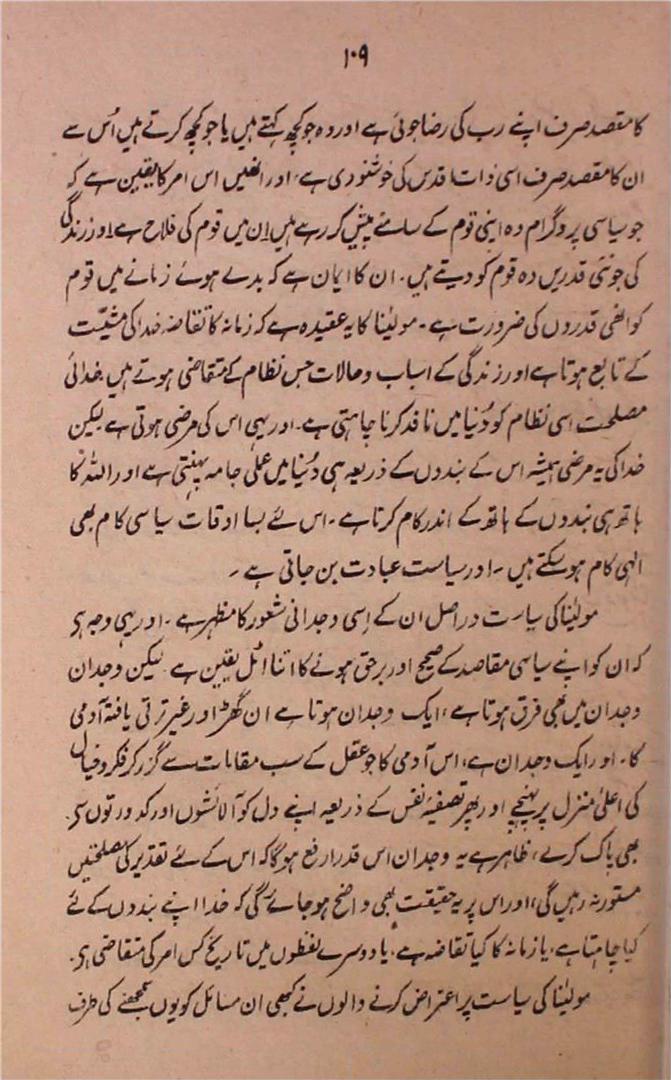 ۱۰۹
کا مقصد صرف اپنے رب کی رضا جوئی ہے اور وہ جو کچھ کہتے ہیں یا جو کچھ کرتے ہیں اُس سے
ان کا مقصد صرف اسی ذات اقدس کی خوشنودی ہے، اور انھیں اس امر کا یقین ہے کہ
جو سیاسی پروگرام وہ اپنی قوم کے سامنے پیش کر رہے ہیں اِن میں قوم کی فلاح ہے اور زندگی
کی جو نئی قدریں وہ قوم کو دیتے ہیں۔ ان کا ایمان ہے کہ بدلے ہوئے زمانے میں قوم
کو انھی قدروں کی ضرورت ہے۔ مولیٰنا کا یہ عقیدہ ہے کہ زمانہ کا تقاضہ خدا کی مشیّت
کے تابع ہوتا ہے اور زندگی کے اسباب و حالات جس نظام کے متقاضی ہوتے ہیں خدائی
مصلحت اسی نظام کو دُنیا میں نافذ کرنا چاہتی ہے۔ اور یہی اس کی مرضی ہوتی ہے لیکن
خدا کی یہ مرضی ہمیشہ اس کے بندوں کے ذریعہ ہی دُنیا میں عملی جامہ پہنتی ہے اور اللہ کا
ہاتھ ہی بندوں کے ہاتھ کے اندر کام کرتا ہے۔ اس لئے بسا اوقات سیاسی کام بھی
الٰہی کام ہو سکتے ہیں۔ اور سیاست عبادت بن جاتی ہے۔
مولیٰنا کی سیاست دراصل ان کے اِسی وجدانی شعور کا مظہر ہے۔ اور یہی وجہ ہے
کہ ان کو اپنے سیاسی مقاصد کے صحیح اور برحق ہونے کا اتنا اٹل یقین ہے لیکن وجدان
وجدان میں بھی فرق ہوتا ہے، ایک وجدان ہوتا ہے ان گھڑ اور غیر ترقی یافتہ آدمی
کا۔ اور ایک وجدان ہے، اس آدمی کا جو عقل کے سب مقامات سے گزر کر فکر و خیال
کی اعلیٰ منزل پر پہنچے اور پھر تصفیۂ نفس کے ذریعہ اپنے دل کو آلائشوں اور کدورتوں سے
بھی پاک کرلے، ظاہر ہے یہ وجدان اس قدر ارفع ہوگا کہ اس کے لئے تقدیر کی مصلحتیں
مستور نہ رہیں گی، اور اس پر یہ حقیقت بھی واضح ہو جائے گی کہ خدا اپنے بندوں کے لئے
کیا چاہتا ہے، یا زمانہ کا کیا تقاضہ ہے، یا دوسرے لفظوں میں تاریخ کس امر کی متقاضی ہے۔
مولیٰنا کی سیاست پر اعتراض کرنے والوں نے کبھی ان مسائل کو یوں سمجھنے کی طرف